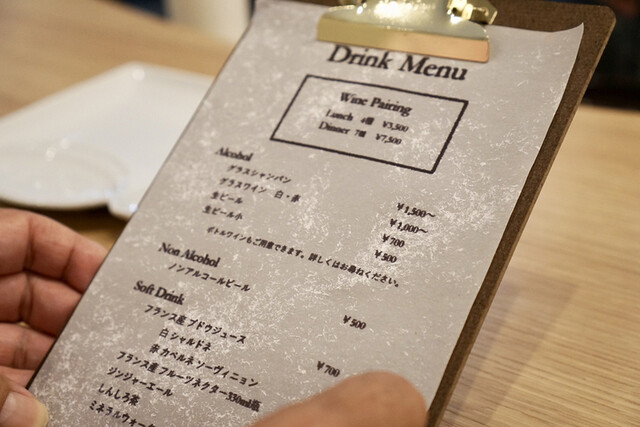 Drink Menu
Wine Pairing
Lunch 4種 ¥5,500
Dinner 7種 ¥7,500
Alcohol
グラスシャンパン ¥1,500〜
グラスワイン 白・赤 ¥1,000〜
生ビール ¥700
生ビール小 ¥500
ボトルワインもご用意できます。詳しくはお尋ねください。
Non Alcohol
ノンアルコールビール ¥500
Soft Drink
フランス産 ブドウジュース ¥700
白 シャルドネ
赤 カベルネ ソーヴィニョン
フランス産 フルーツネクター330ml瓶
ジンジャーエール
しんしろ茶
ミネラルウォータ